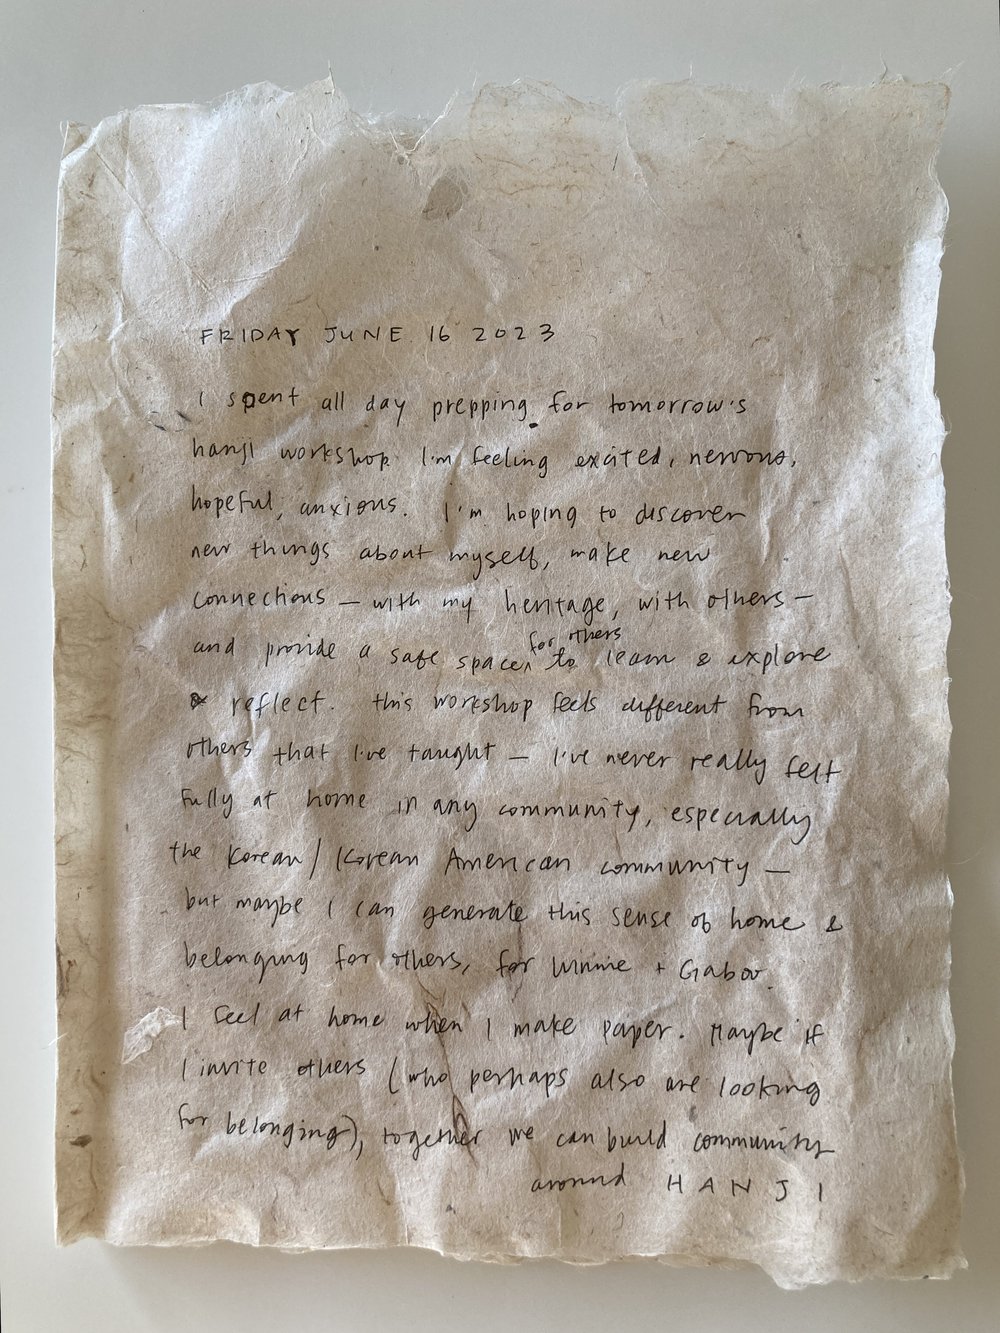 FRIDAY JUNE 16 2023
I spent all day prepping for tomorrow's
hanji workshop. I'm feeling excited, nervous,
hopeful, anxious. I'm hoping to discover
new things about myself, make new
connections — with my heritage, with others —
and provide a safe space, for others to learn & explore
& reflect. This workshop feels different from
others that I've taught — I've never really felt
fully at home in any community, especially
the Korean / Korean American community —
but maybe I can generate this sense of home &
belonging for others, for Winnie + Gabor.
I feel at home when I make paper. Maybe if
I invite others (who perhaps also are looking
for belonging), together we can build community
around HANJI